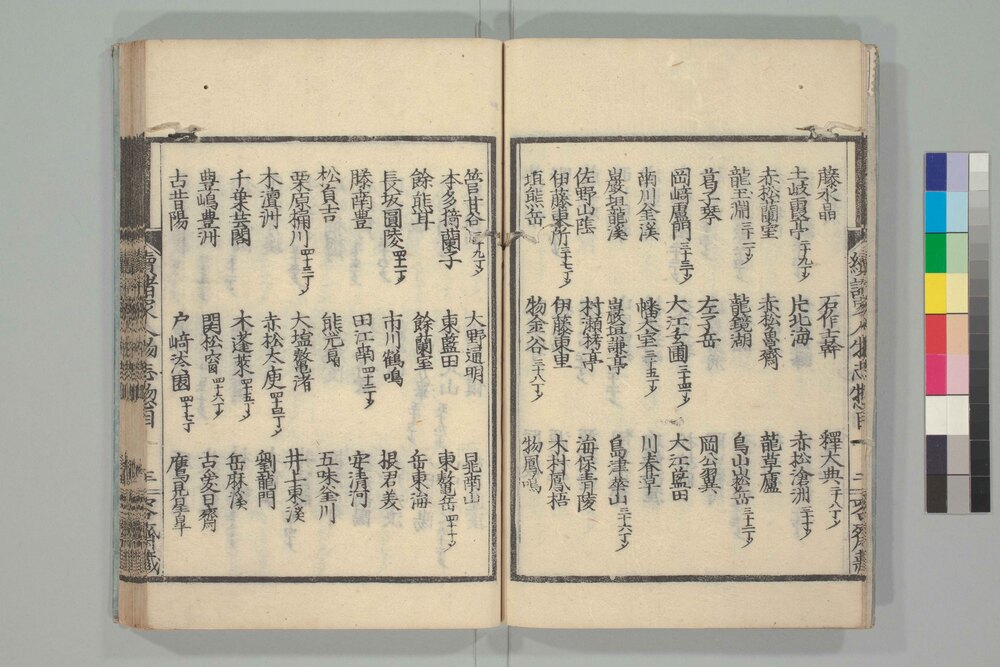 藤水晶 石作士幹 釋大典二十八丁ゟ
土岐霞亭二十九丁ゟ 片北海 赤松滄洲三十丁ゟ
赤松蘭室 赤松魯齋 龍草廬
龍玉淵三十一丁ゟ 龍鏡湖 鳥山崧岳三十二丁ゟ
葛子琴 左子岳 岡公翼
岡﨑廬門三十三丁ゟ 大江玄圃三十四丁ゟ 大江藍田
南川金溪 幡文室三十五丁ゟ 川春草
巖垣龍溪 巖垣謙亭 島津華山三十六丁ゟ
佐野山陰 村瀬栲亭 海保青陵
伊藤東所三十七丁ゟ 伊藤東里 木村鳳梧
垣熊岳 物金谷三十八丁ゟ 物鳳鳴
續諸家人物志惣目 三 容齋藏
菅甘谷三十九丁ゟ 大野通明 晁南山
本多猗蘭子 東藍田 東鼇岳四十丁ゟ
餘熊耳 餘蘭室 岳東海
長坂圓陵四十一丁ゟ 市川鶴鳴 根君美
滕南豊 田江南四十二丁ゟ 安清河
松貞吉 熊元 五味釜川
栗原桶川四十三丁ゟ 大塩鼇渚 井上東溪
木澶洲 赤松太庾四十四丁ゟ 劉龍門
千葉芸閣 木蓬萊四十五丁ゟ 岳麻溪
豊嶋豊洲 関松窗四十六丁ゟ 古愛日齋
古昔陽 戸﨑淡園四十七丁 鷹見星皐
續諸家人物志惣目 三 容齋藏